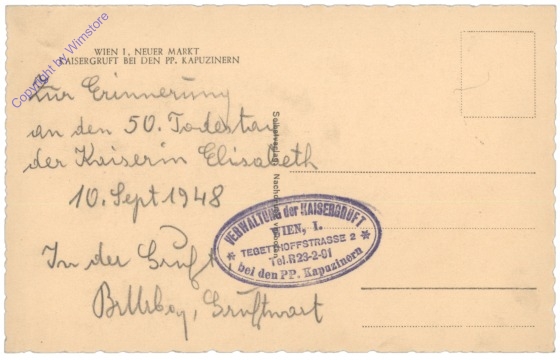 Copyright by Wimstore
WIEN I. NEUER MARKT
KAISERGRUFT BEI DEN PP. KAPUZINERN
Zur Erinnerung
an den 50. Todestag
der Kaiserin Elisabeth
10. Sept 1948
In der Gruft,
Gruftwart
VERWALTUNG der KAISERGRUFT
WIEN, I.
TEGETTHOFFSTRASSE 2
Tel. R 23-2-01
* bei den PP. Kapuzinern *